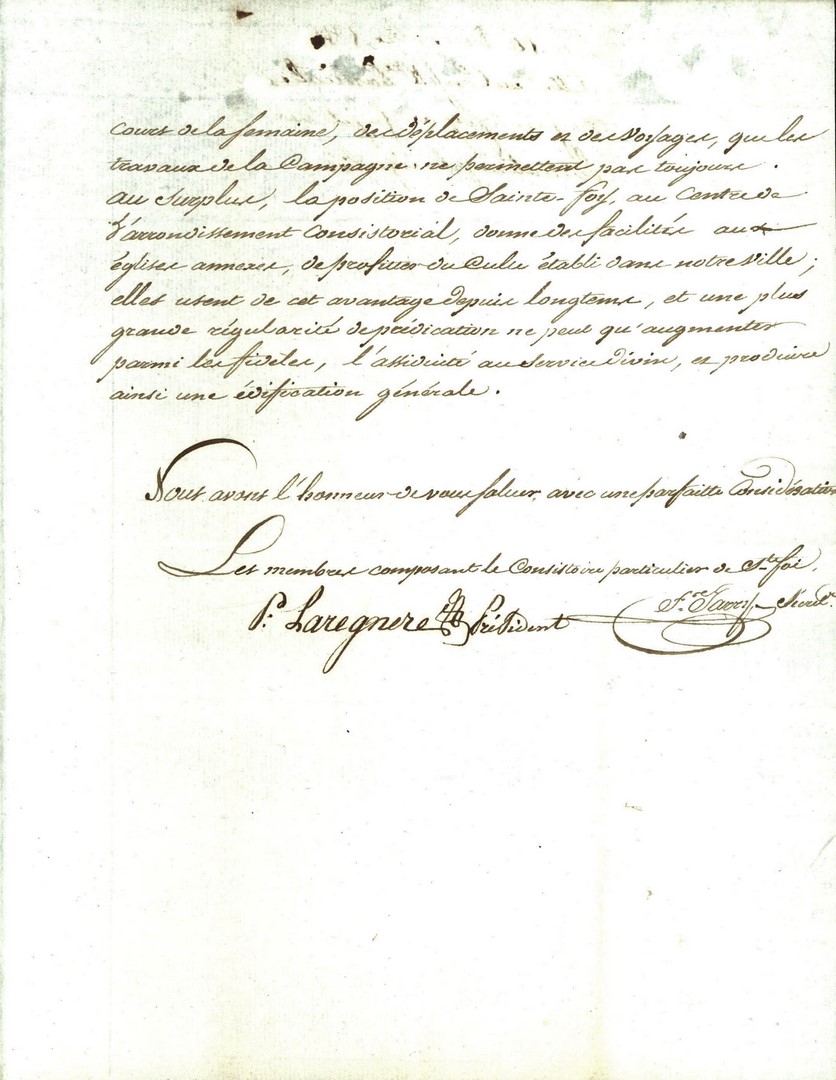 cours de la semaine, des déplacements et des voyages, que les
travaux de la Campagne ne permettent pas toujours.
au surplus, la position de Sainte-foy, au centre de
l'arrondissement Consistorial, donne des facilités aux
églises annexes, de profitter du Culte établi dans notre Ville;
elles usent de cet avantage depuis longtems, et une plus
grande régularité de prédication ne peut qu'augmenter
parmi les fideles, l'assiduité au Service divin, et produire
ainsi une édification générale.
Nous avons l'honneur de vous saluer avec une parfaitte Considération
Les membres composant le Consistoire particulier de Ste foi.
Pre Laregnere Président
Secret.re